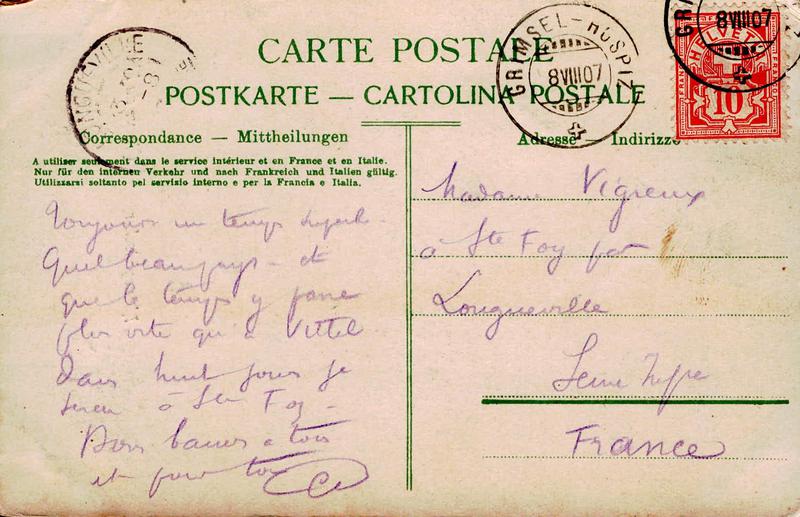 CARTE POSTALE
POSTKARTE — CARTOLINA POSTALE
GRIMSEL-HOSPIZ
8 VIII 07
8 VIII 07
HELVETIA
FRANCO
10
Correspondance — Mittheilungen
Adresse Indirizzo
A utiliser seulement dans le service intérieur et en France et en Italie.
Nur für den internen Verkehr und nach Frankreich und Italien gültig.
Utilizzarsi soltanto pel servizio interno e per la Francia e Italia.
Toujours un temps superbe -
Quel beau pays - et
que le temps y passe
plus vite qu'à Vittel
Dans huit jours je
serai à Ste Foy -
Bons baisers à tous
et pour toi
Madame Vigreux
à Ste Foy par
Longueville
Seine Infre
France